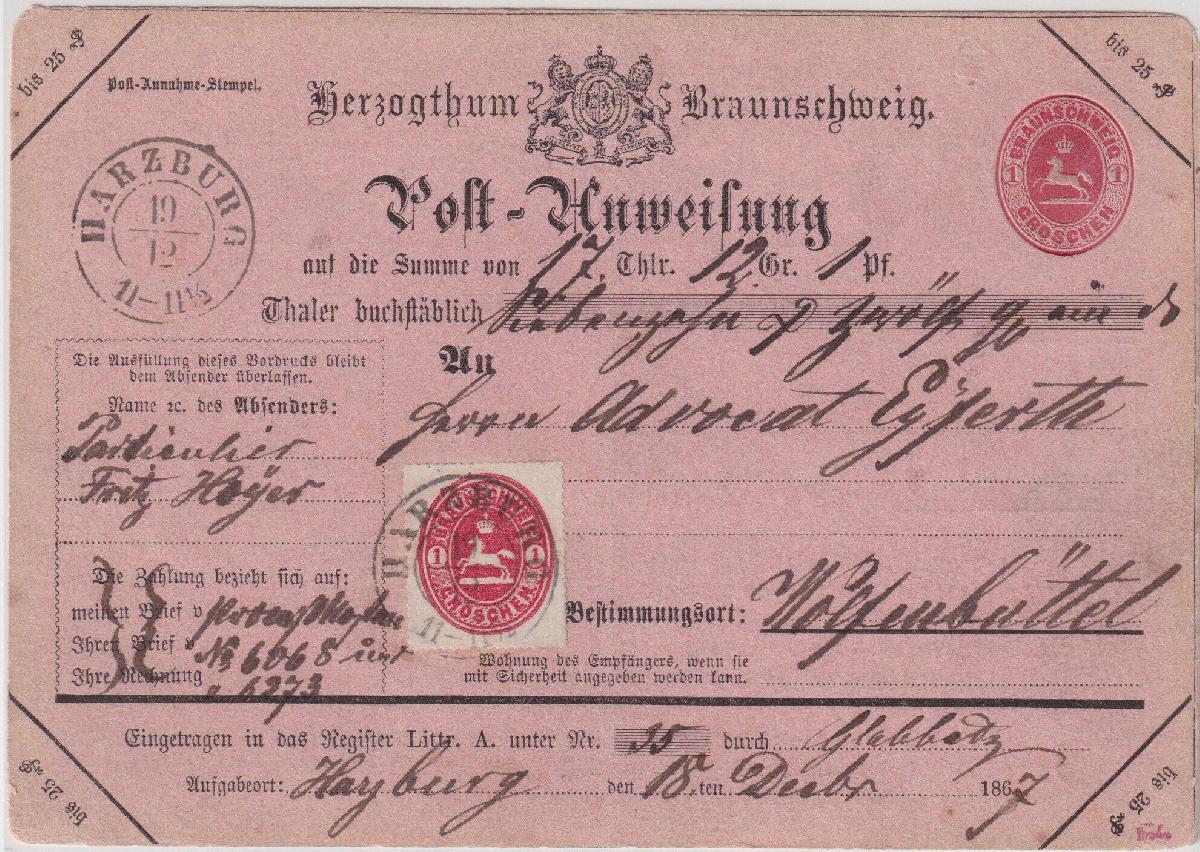 bis 25 ₰
bis 25 ₰
Post-Annahme-Stempel.
Herzogthum Braunschweig.
BRAUNSCHWEIG
1 1
GROSCHEN
HARZBURG
19
12
11-11½
Post-Anweisung
auf die Summe von 17 Thlr. 12 Gr. 1 Pf.
Thaler buchstäblich Siebenzehn zwölf ein
Die Ausfüllung dieses Vordrucks bleibt
dem Absender überlassen.
Name ꝛc. des Absenders:
Particulier
Fritz Hoÿer
An
Herrn Advocat Eyferth
BRAUNSCHWEIG
1 1
GROSCHEN
HARZBURG
11-11½
Die Zahlung bezieht sich auf:
meinen Brief v
Ihren Brief v
Ihre Rechnung
Proceßkosten
№ 6068 und
6273
Bestimmungsort: Wolfenbüttel
Wohnung des Empfängers, wenn sie
mit Sicherheit angegeben werden kann.
Eingetragen in das Register Littr. A. unter Nr. 35 durch
Aufgabeort: Harzburg den 18ten Decbr 1867
bis 25 ₰
bis 25 ₰